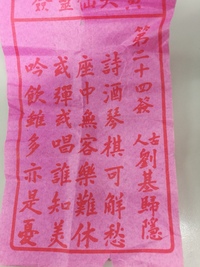 第二十四簽
古人劉基歸隱
詩酒琴棋可解愁
座中無客樂難休
或彈或唱誰知美
吟飲雖多亦是憂